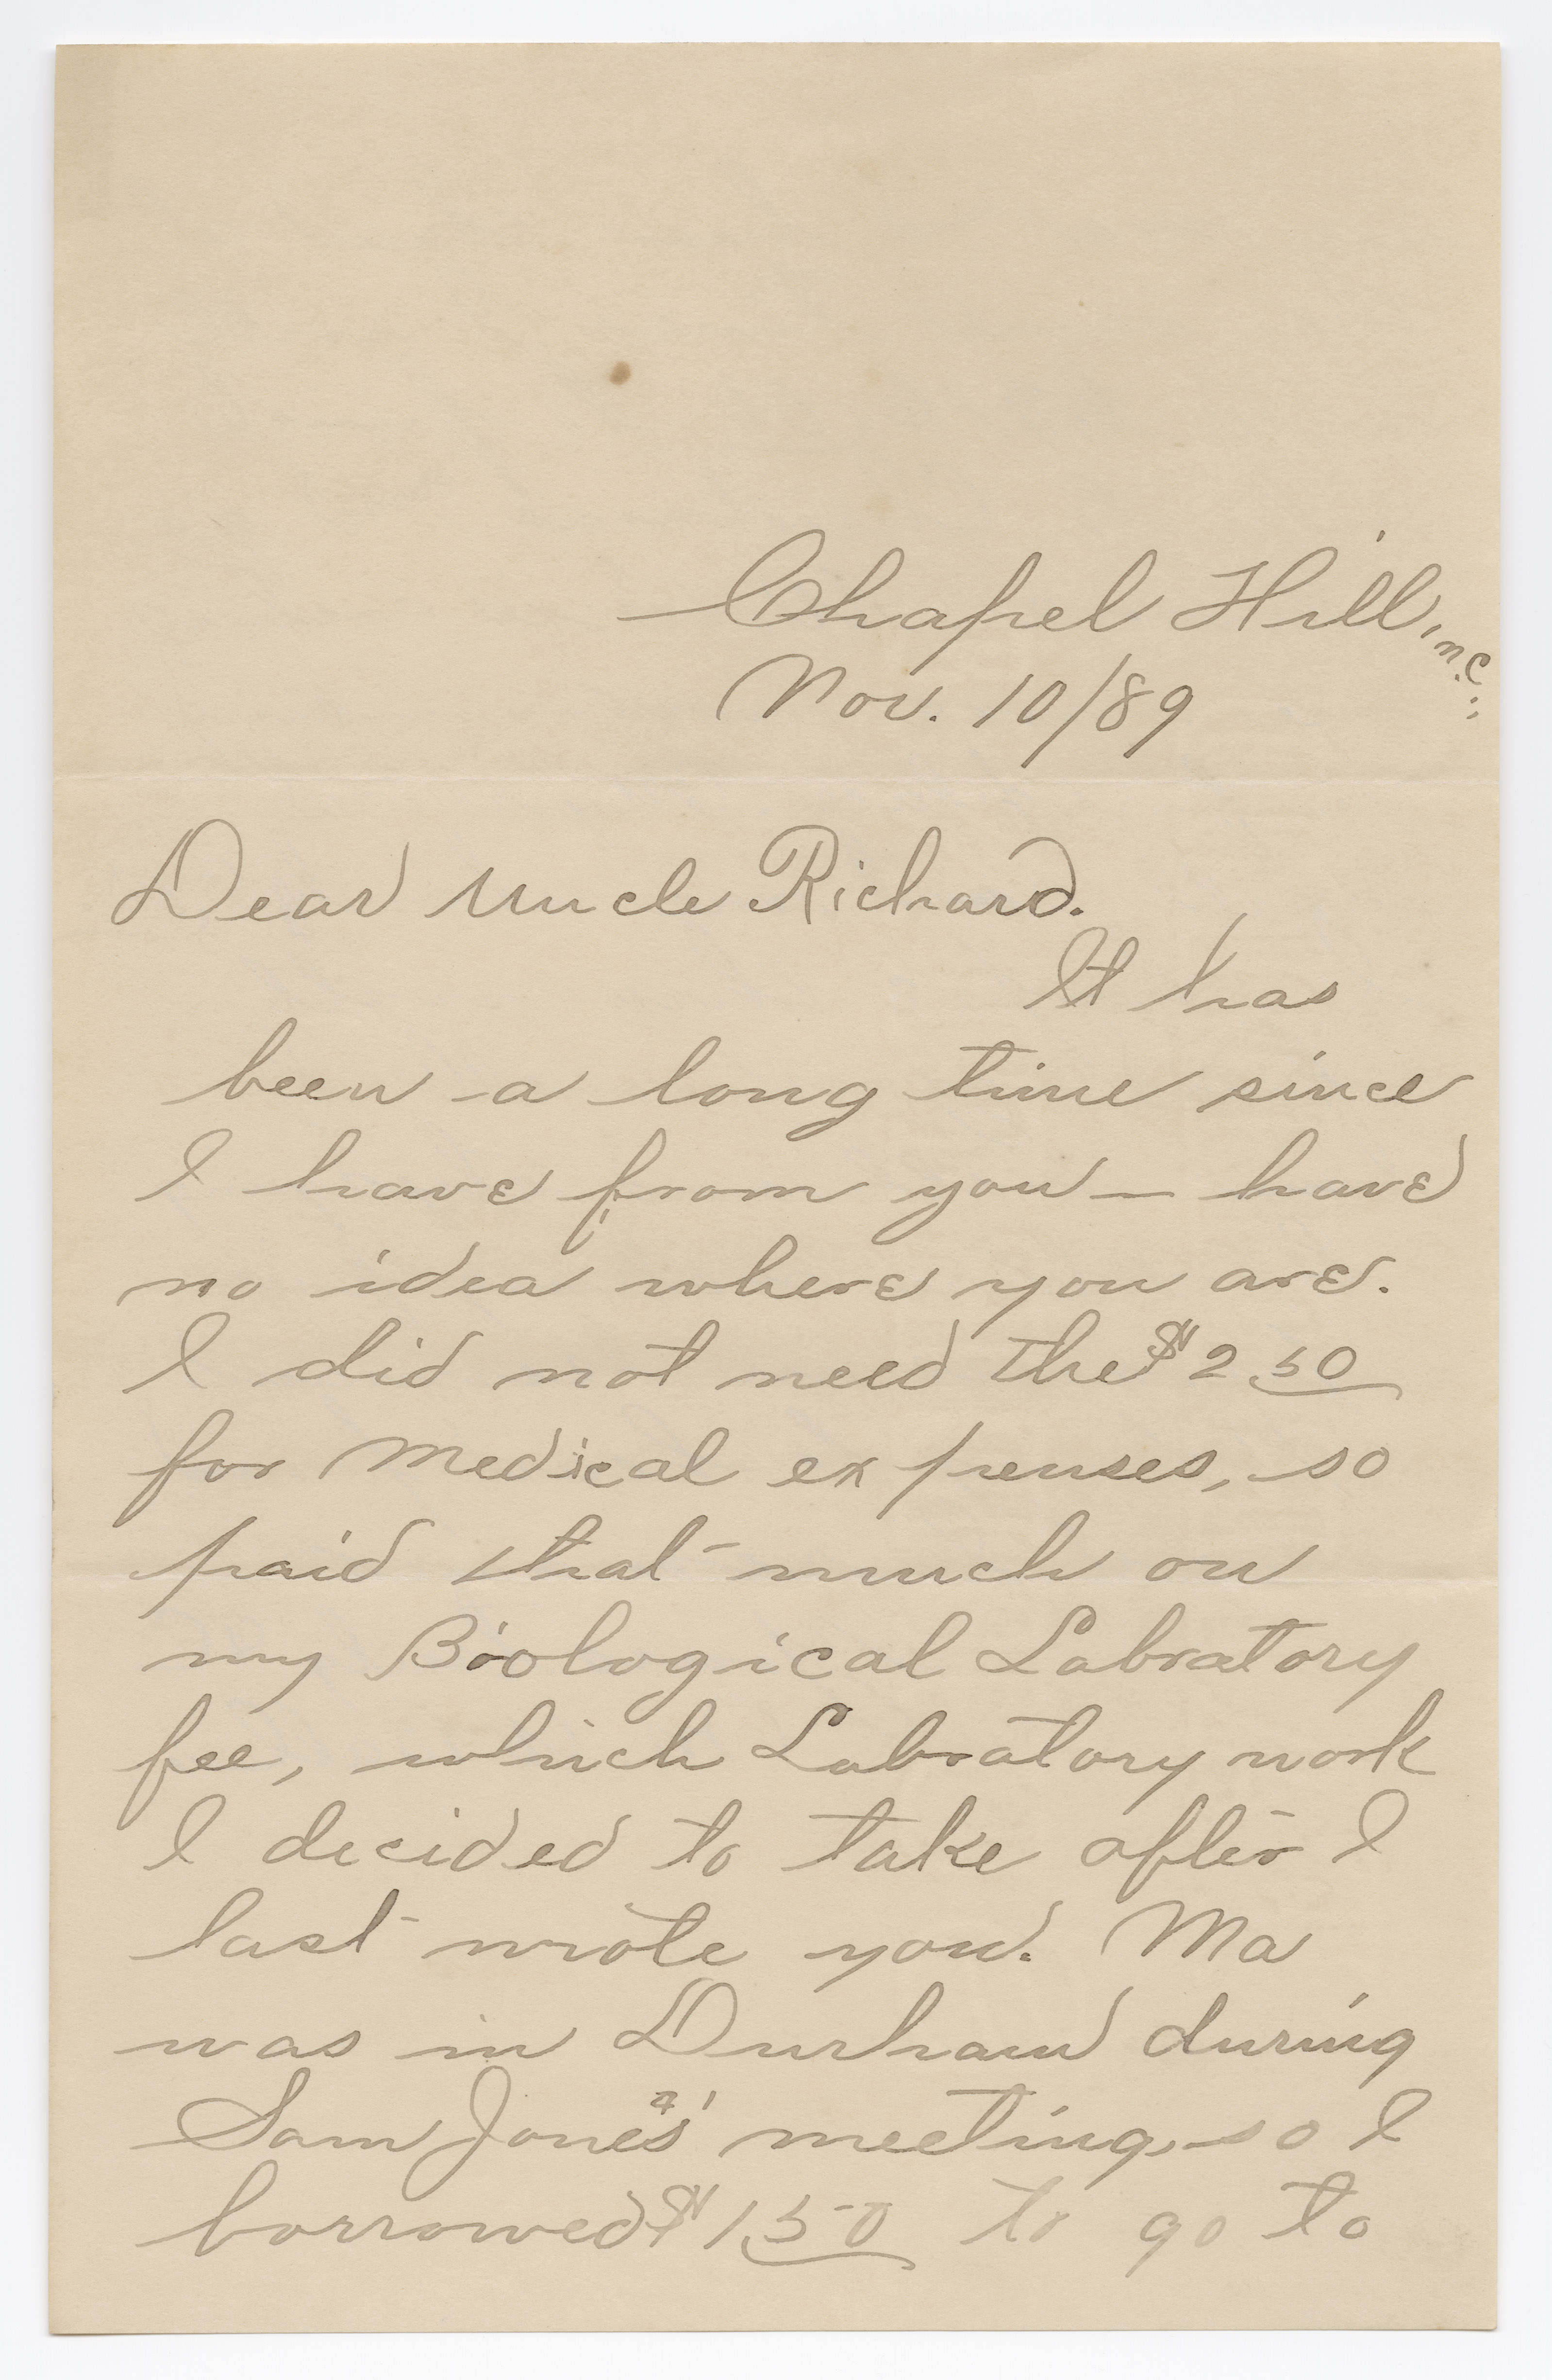 Chapel Hill, N.C.:
Nov. 10/89
Dear Uncle Richard.
It has
been a long time since
I have from you — have
no idea where you are.
I did not need the $2.50
for Medical expenses, so
paid that much on
my Biological Labratory
fee, which Labratory work
I decided to take after I
last wrote you. Ma
was in Durham during
Sam Jones' meeting, so I
borrowed $1.50 to go to